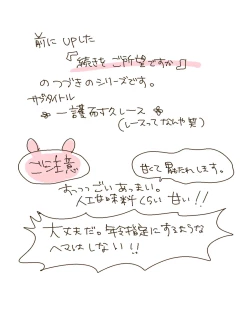 前に upした
『続きをご所望ですか』
のつづきのシリーズです。
サブタイトル
一護百夜レース
(レースってなんや笑)
ご注意
甘くて暴れします。
おっっっごいあっまい。
人工甘味料くらい甘い!!
大丈夫だ。年令指定にするような
ヘマはしない!!